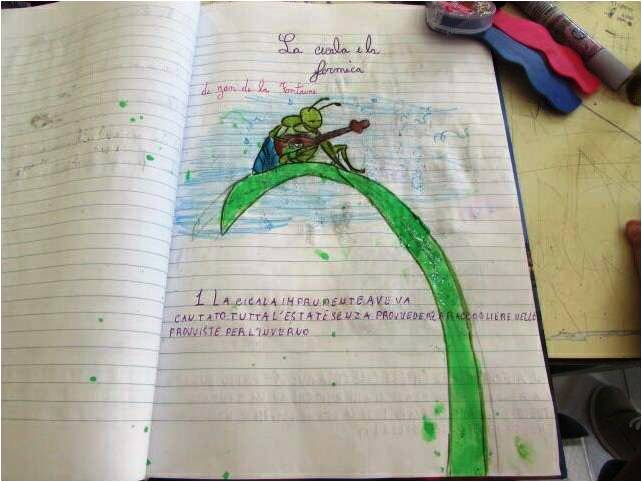 La cicala e la
formica
de gian de la Fontaine
1 LA CICALA IMPRUDENTE AVEVA
CANTATO TUTTA L'ESTATE SENZA PROVVEDERE A RACCOGLIERE DELLE
PROVISTE PER L'INVERNO